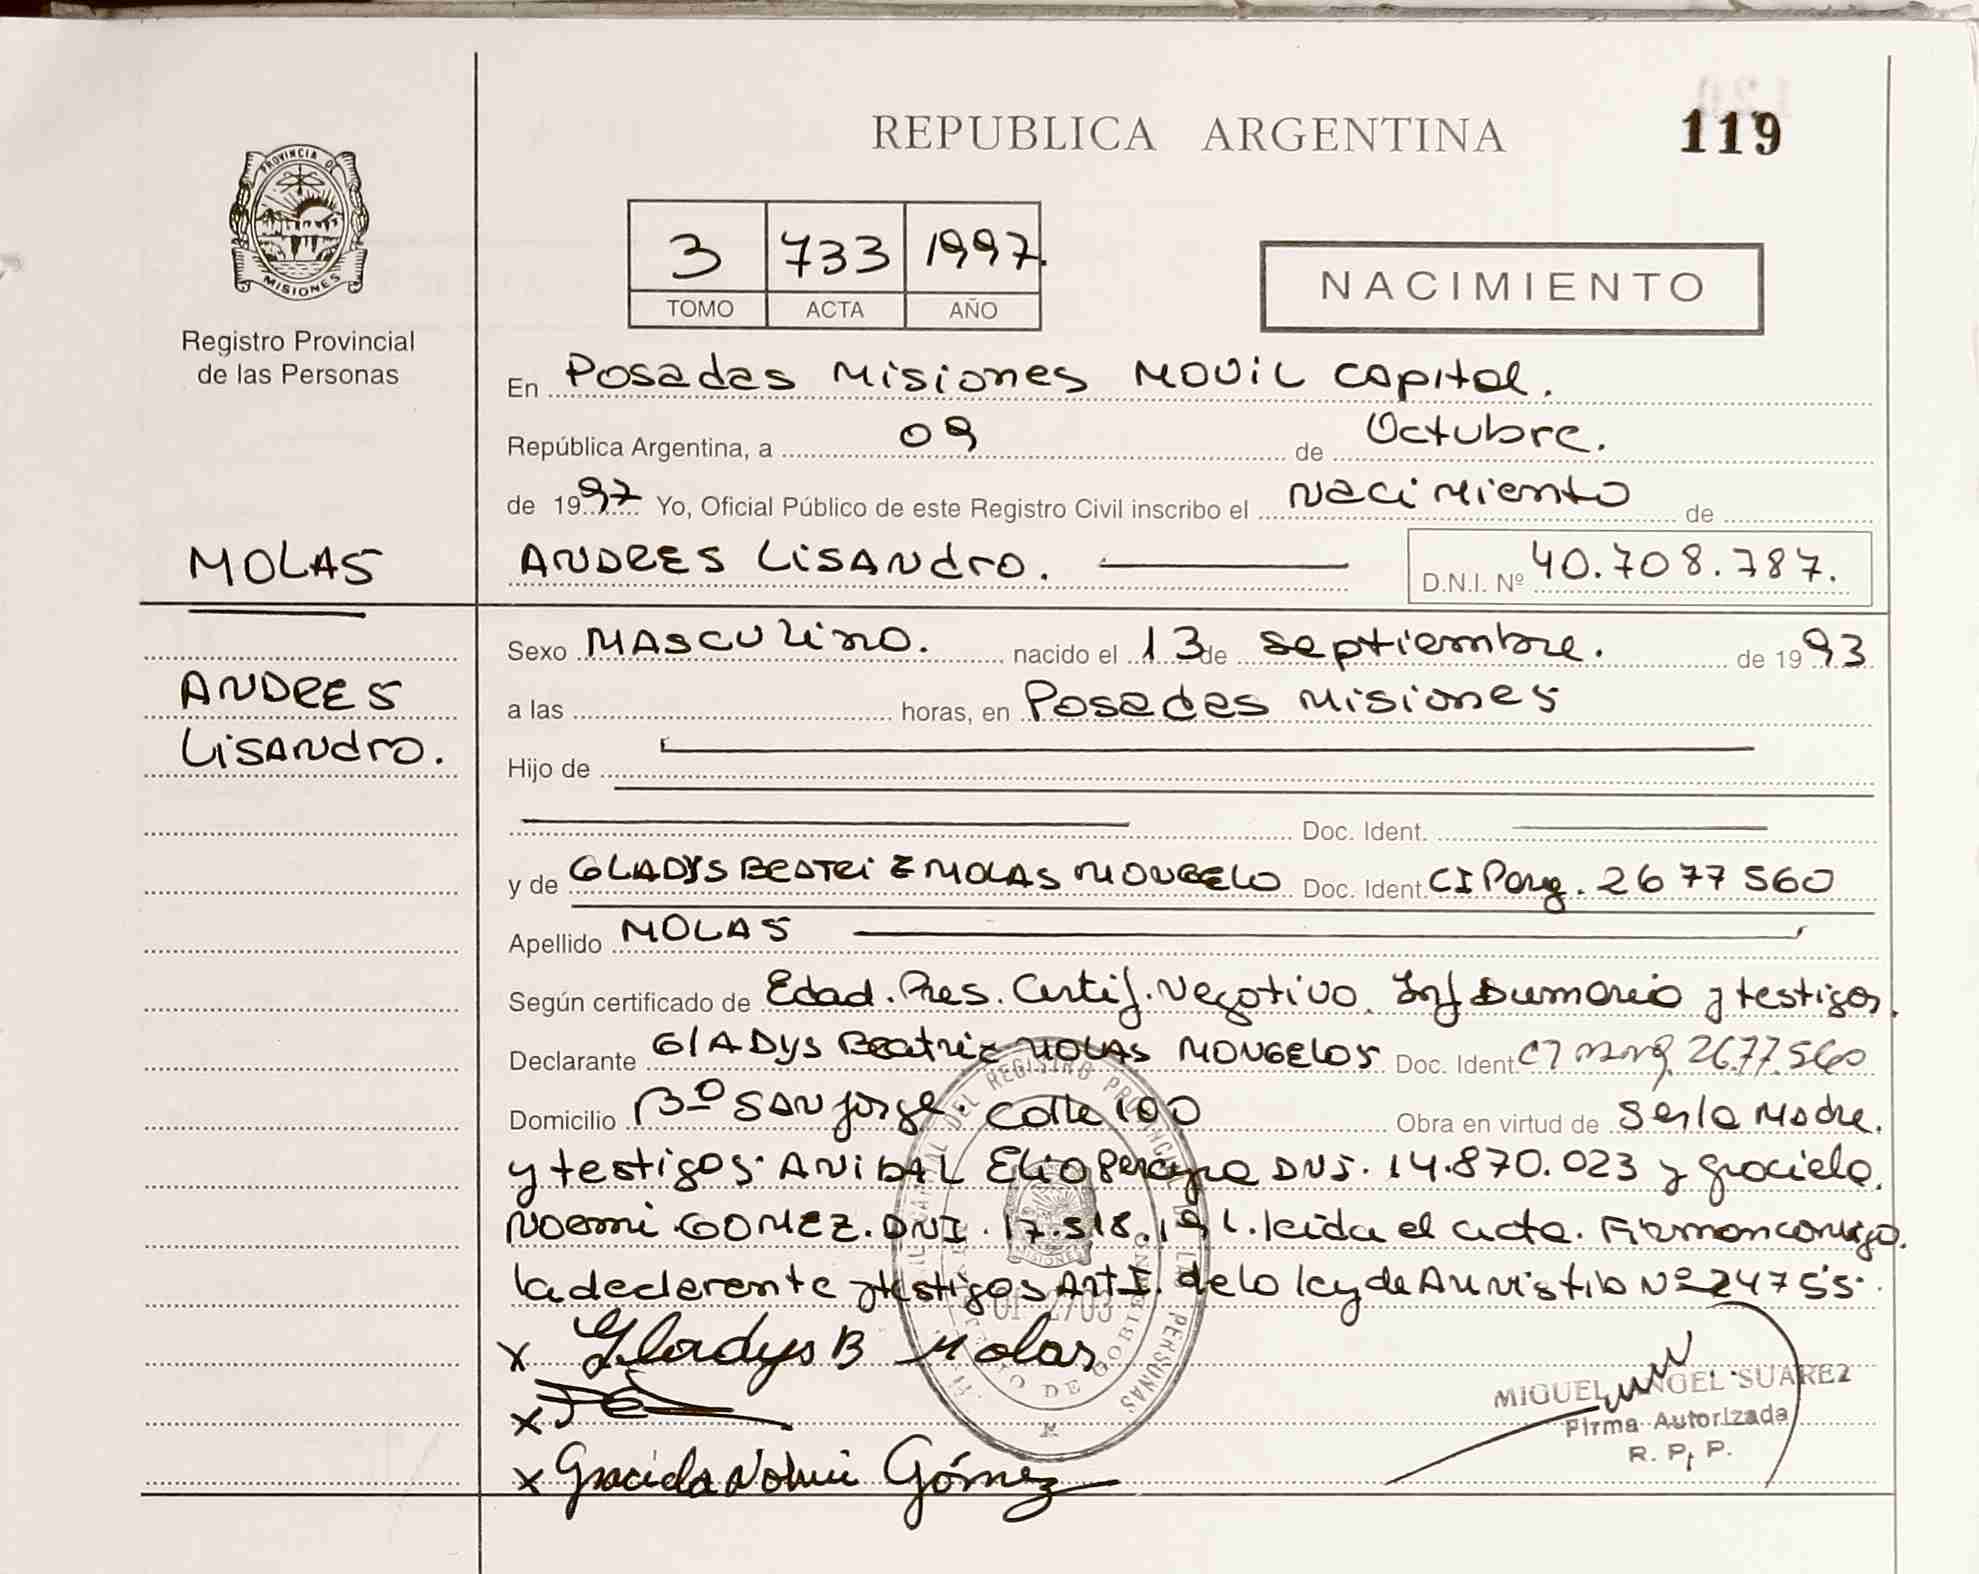 119
REPUBLICA ARGENTINA
PROVINCIA DE
MISIONES
Registro Provincial
de las Personas
3 733 1997.
TOMO ACTA AÑO
NACIMIENTO
En Posadas Misiones Movil Capital.
República Argentina, a 09 de Octubre.
de 1997 Yo, Oficial Público de este Registro Civil inscribo el Nacimiento de
MOLAS
ANDRES LiSANdro. D.N.I. Nº 40.708.787.
ANDRES
LiSANdro.
Sexo MASCULino. nacido el 13 de septiembre. de 1993
a las horas, en Posadas Misiones
Hijo de
Doc. Ident.
y de GLADYS BEATRiZ MOLAS MONGELO Doc. Ident. CI Parg. 2677560
Apellido MOLAS
Según certificado de Edad. Pres. Certif. Negativo. Inf Sumario y testigos.
Declarante GLADYS Beatriz MOLAS MONGELOS Doc. Ident. CI 2677.560
Domicilio Bº SAN Jorge. Calle 100 Obra en virtud de Ser la Madre.
y testigos: ANIBAL Elio Pereyra DNI. 14.870.023 y Graciela.
Noemi GOMEZ. DNI. 17.518.191. leida el acta. Firman conmigo.
la declarante y testigos Art I. de la ley de Amnistia Nº 24755.
x Gladys B Molas
x
x Graciela Nohmi Gómez
DEL REGISTRO PROVINCIAL DE LAS PERSONAS
MIGUEL ANGEL SUAREZ
Firma Autorizada
R. P. P.